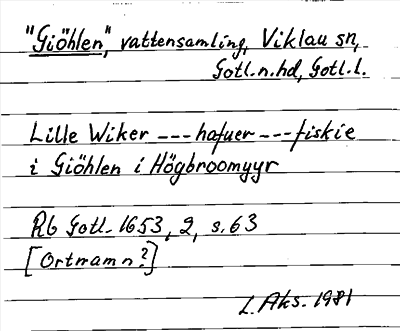 "Giöhlen", vattensamling, Viklau sn,
Gotl.n.hd, Gotl.l.
Lille Wiker --- hafuer --- fiskie
i Giöhlen i Högbroomyyr
Rb Gotl. 1653, 2, s. 63
[Ortnamn?]
L. Aks. 1981